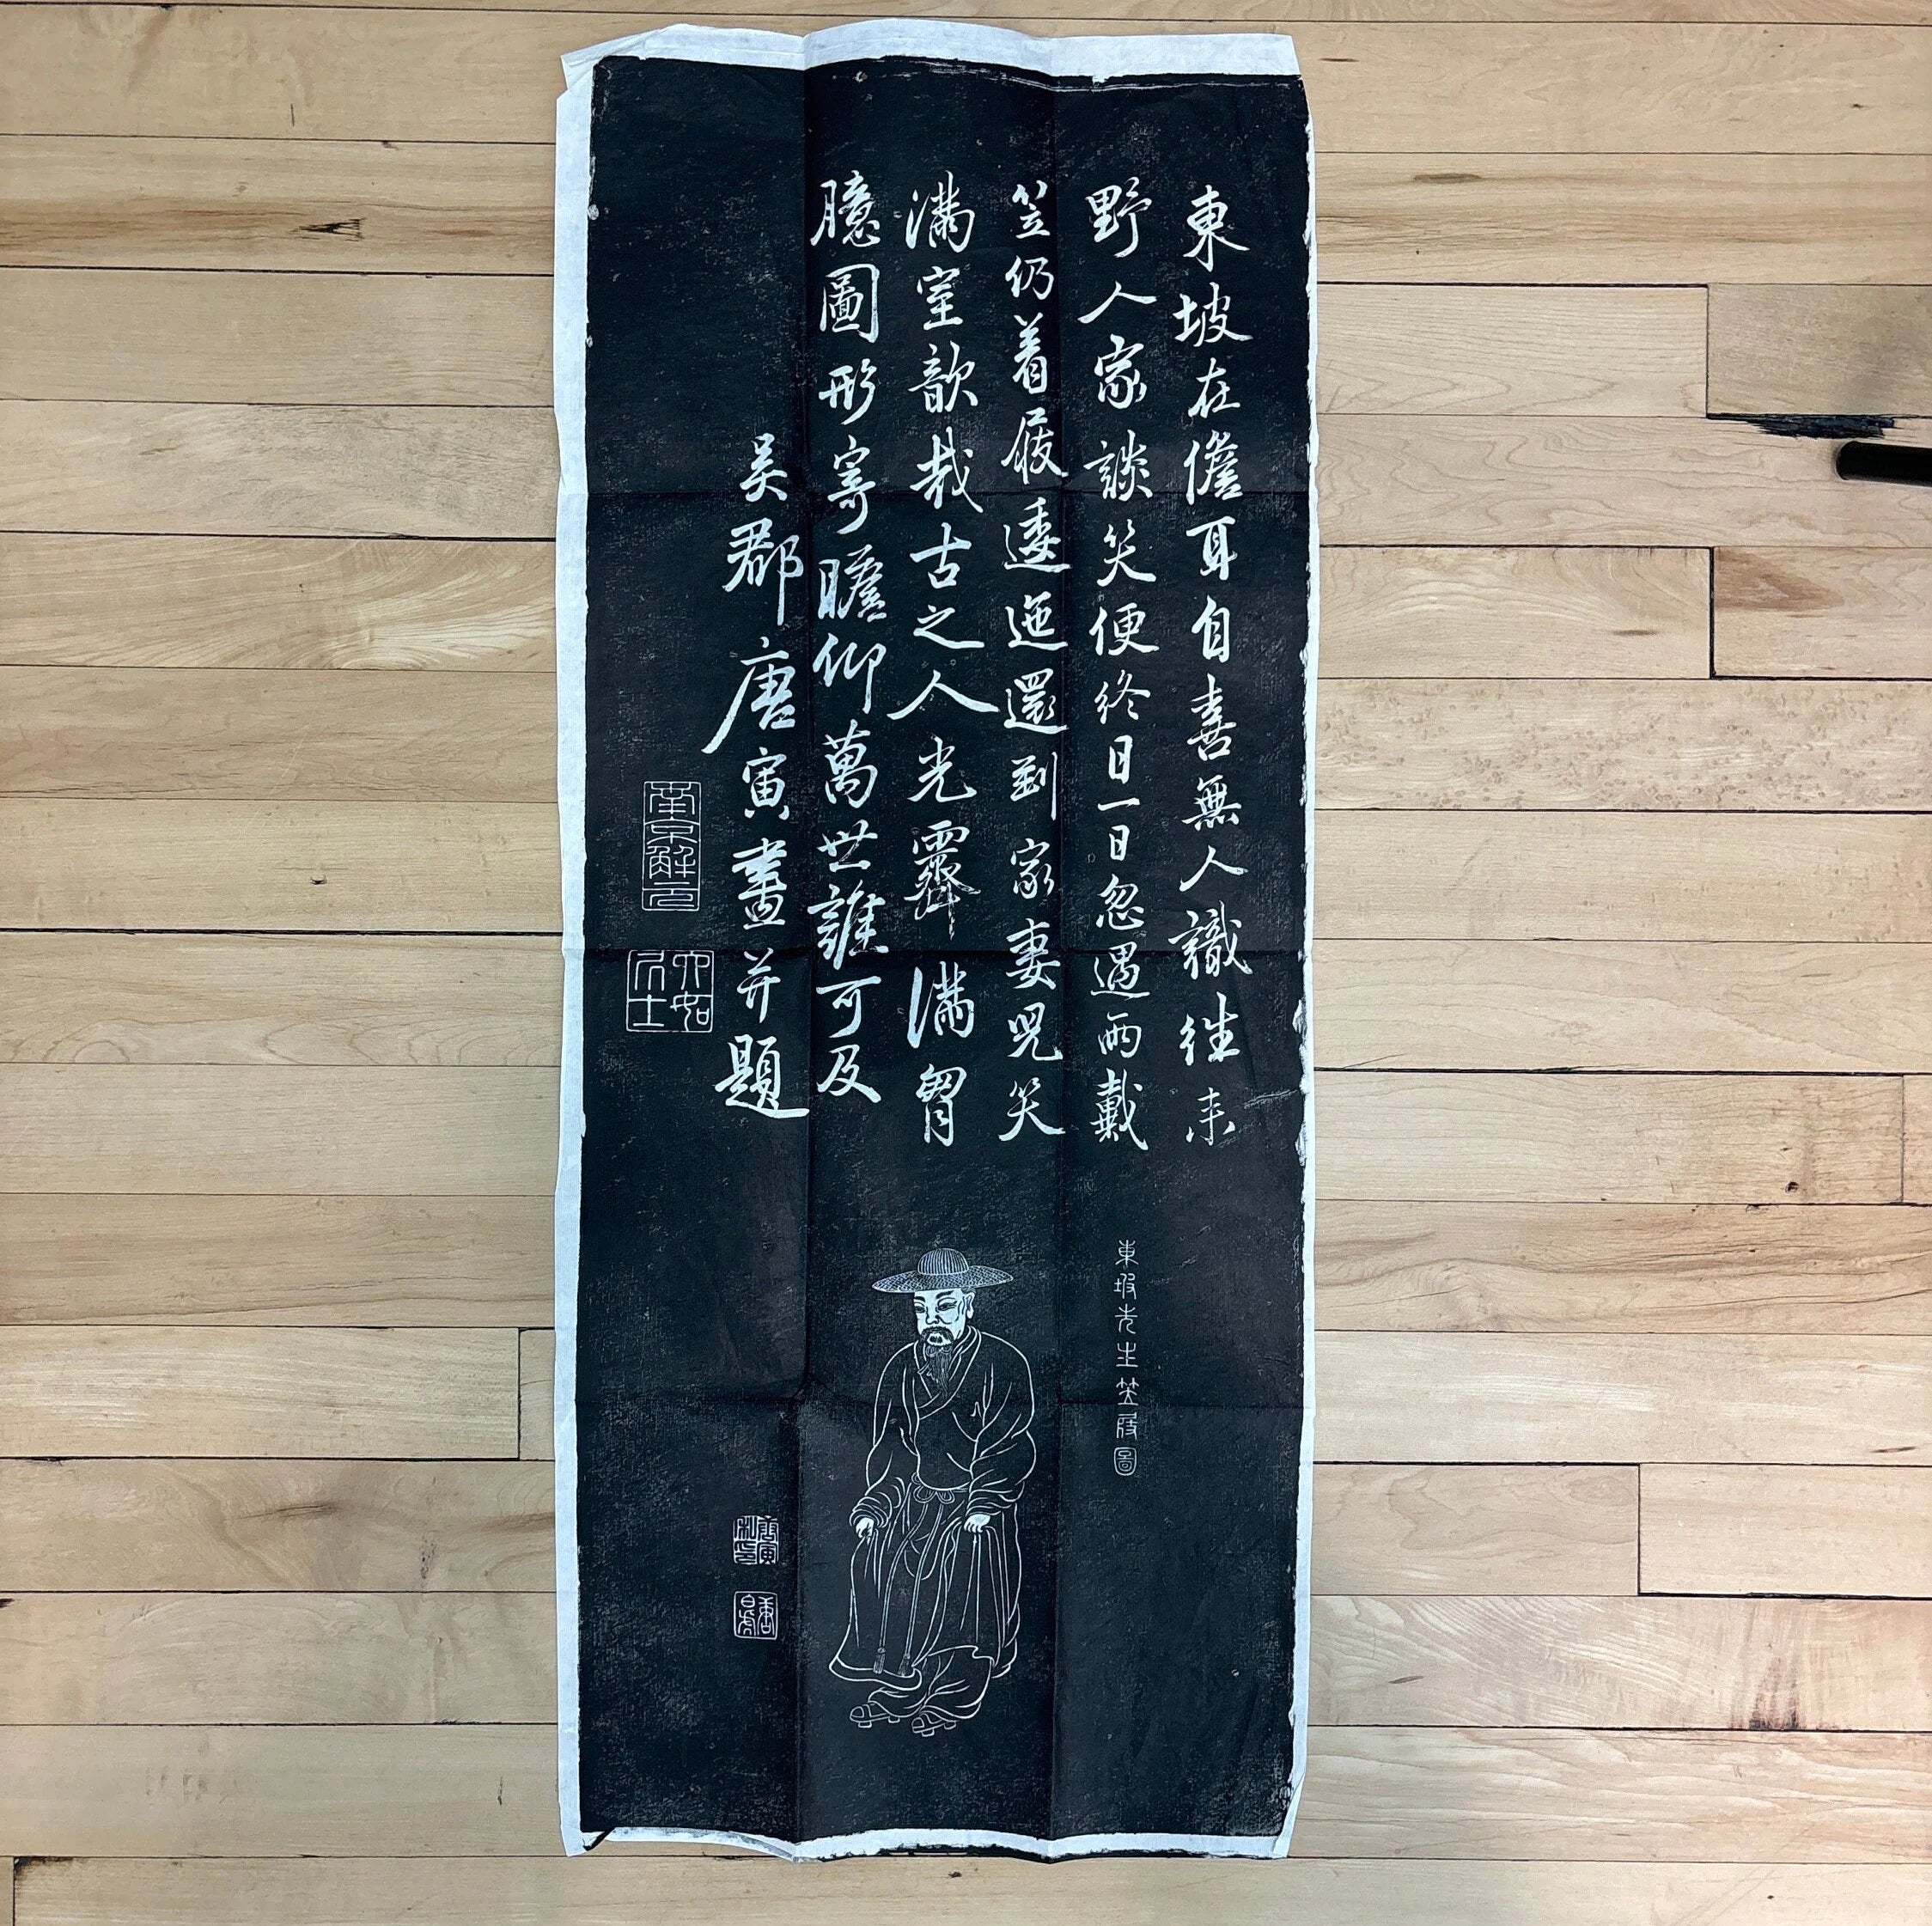 東坡在儋耳自喜無人識往来
野人家談笑便終日一日忽遇雨戴
笠仍着屐逶迤還到家妻児笑
滿室歆㦲古之人光霽滿胷
臆圖形寄瞻仰萬世誰可及
吴郡唐寅畫并題
南京解元
六如居士
東坡先生笠屐圖
唐寅私印